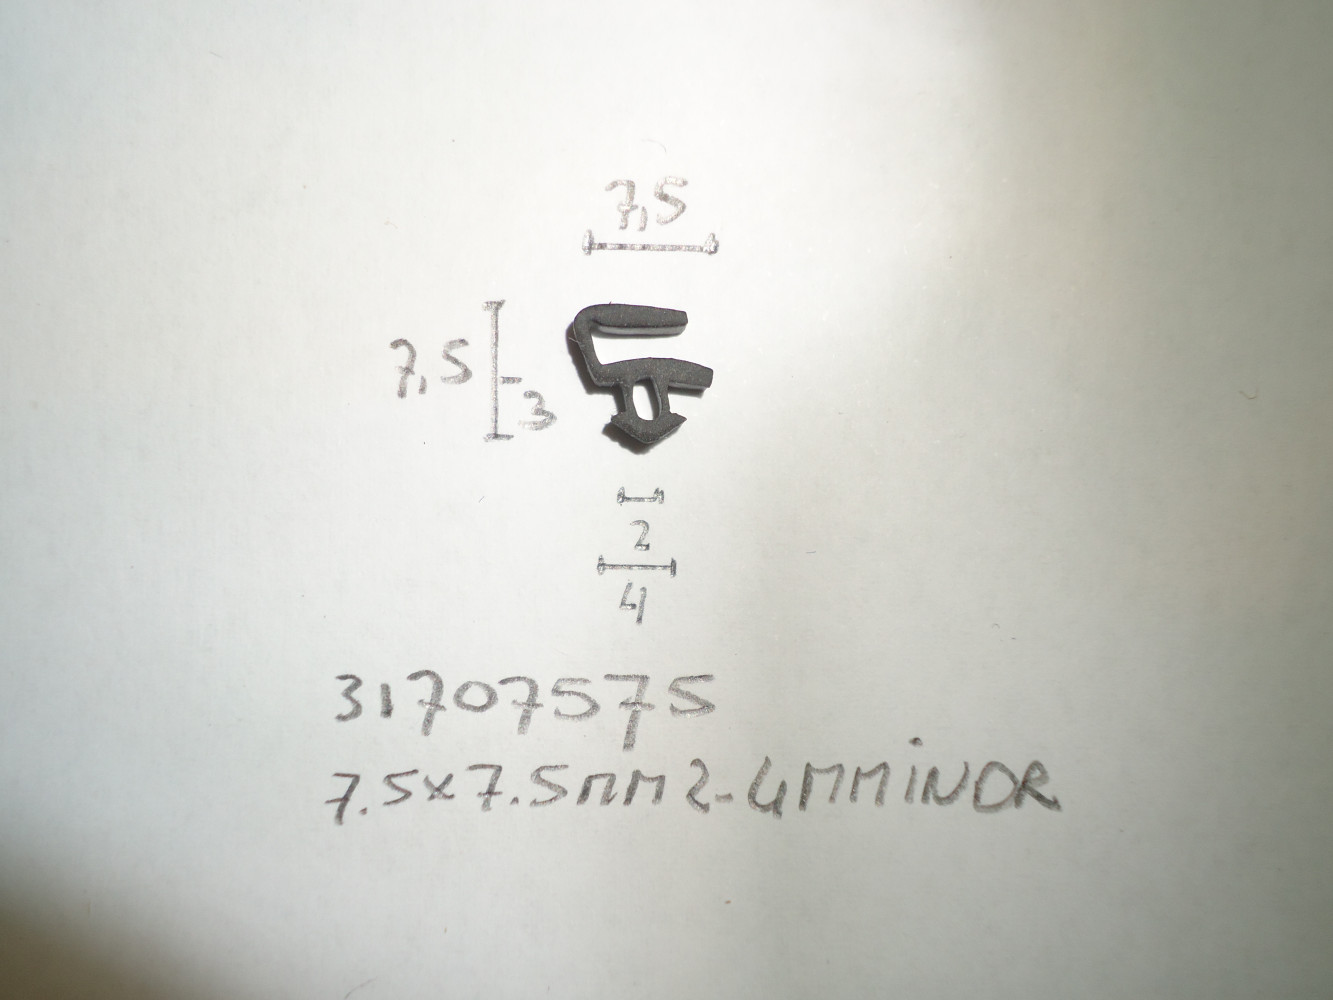 7,5
7,5
3
2
4
31707575
7.5x7.5MM 2-4MMINDR